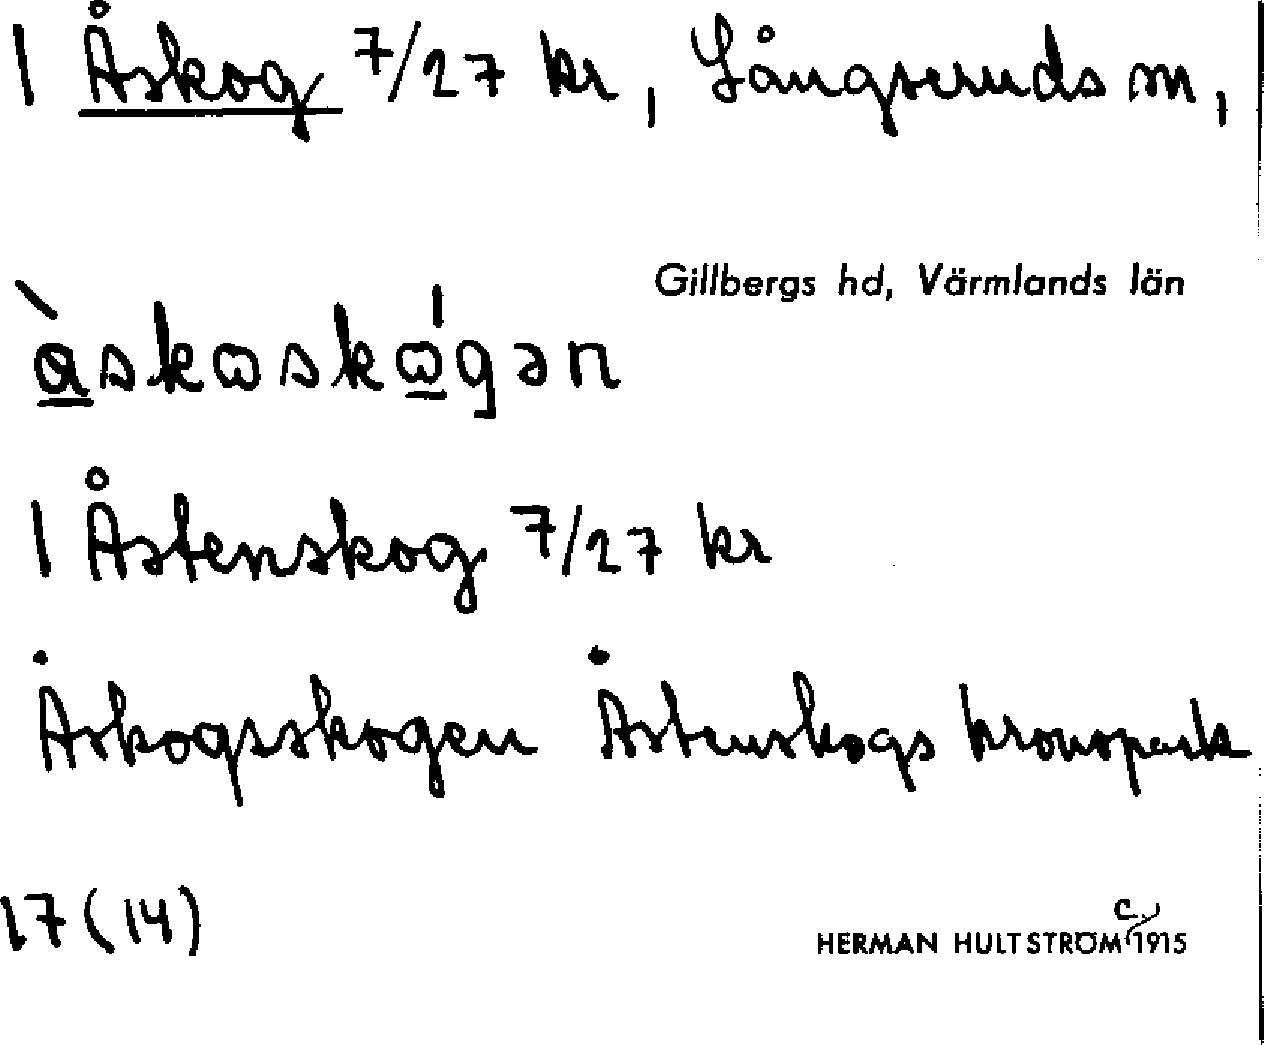 1 Åskog 7/27 kr, Långseruds sn,
Gillbergs hd, Värmlands län
1 Åstenskog 7/27 kr
Åskogsskogen Åstenskogs kronopark
17 (14)
HERMAN HULTSTRÖM c. 1915